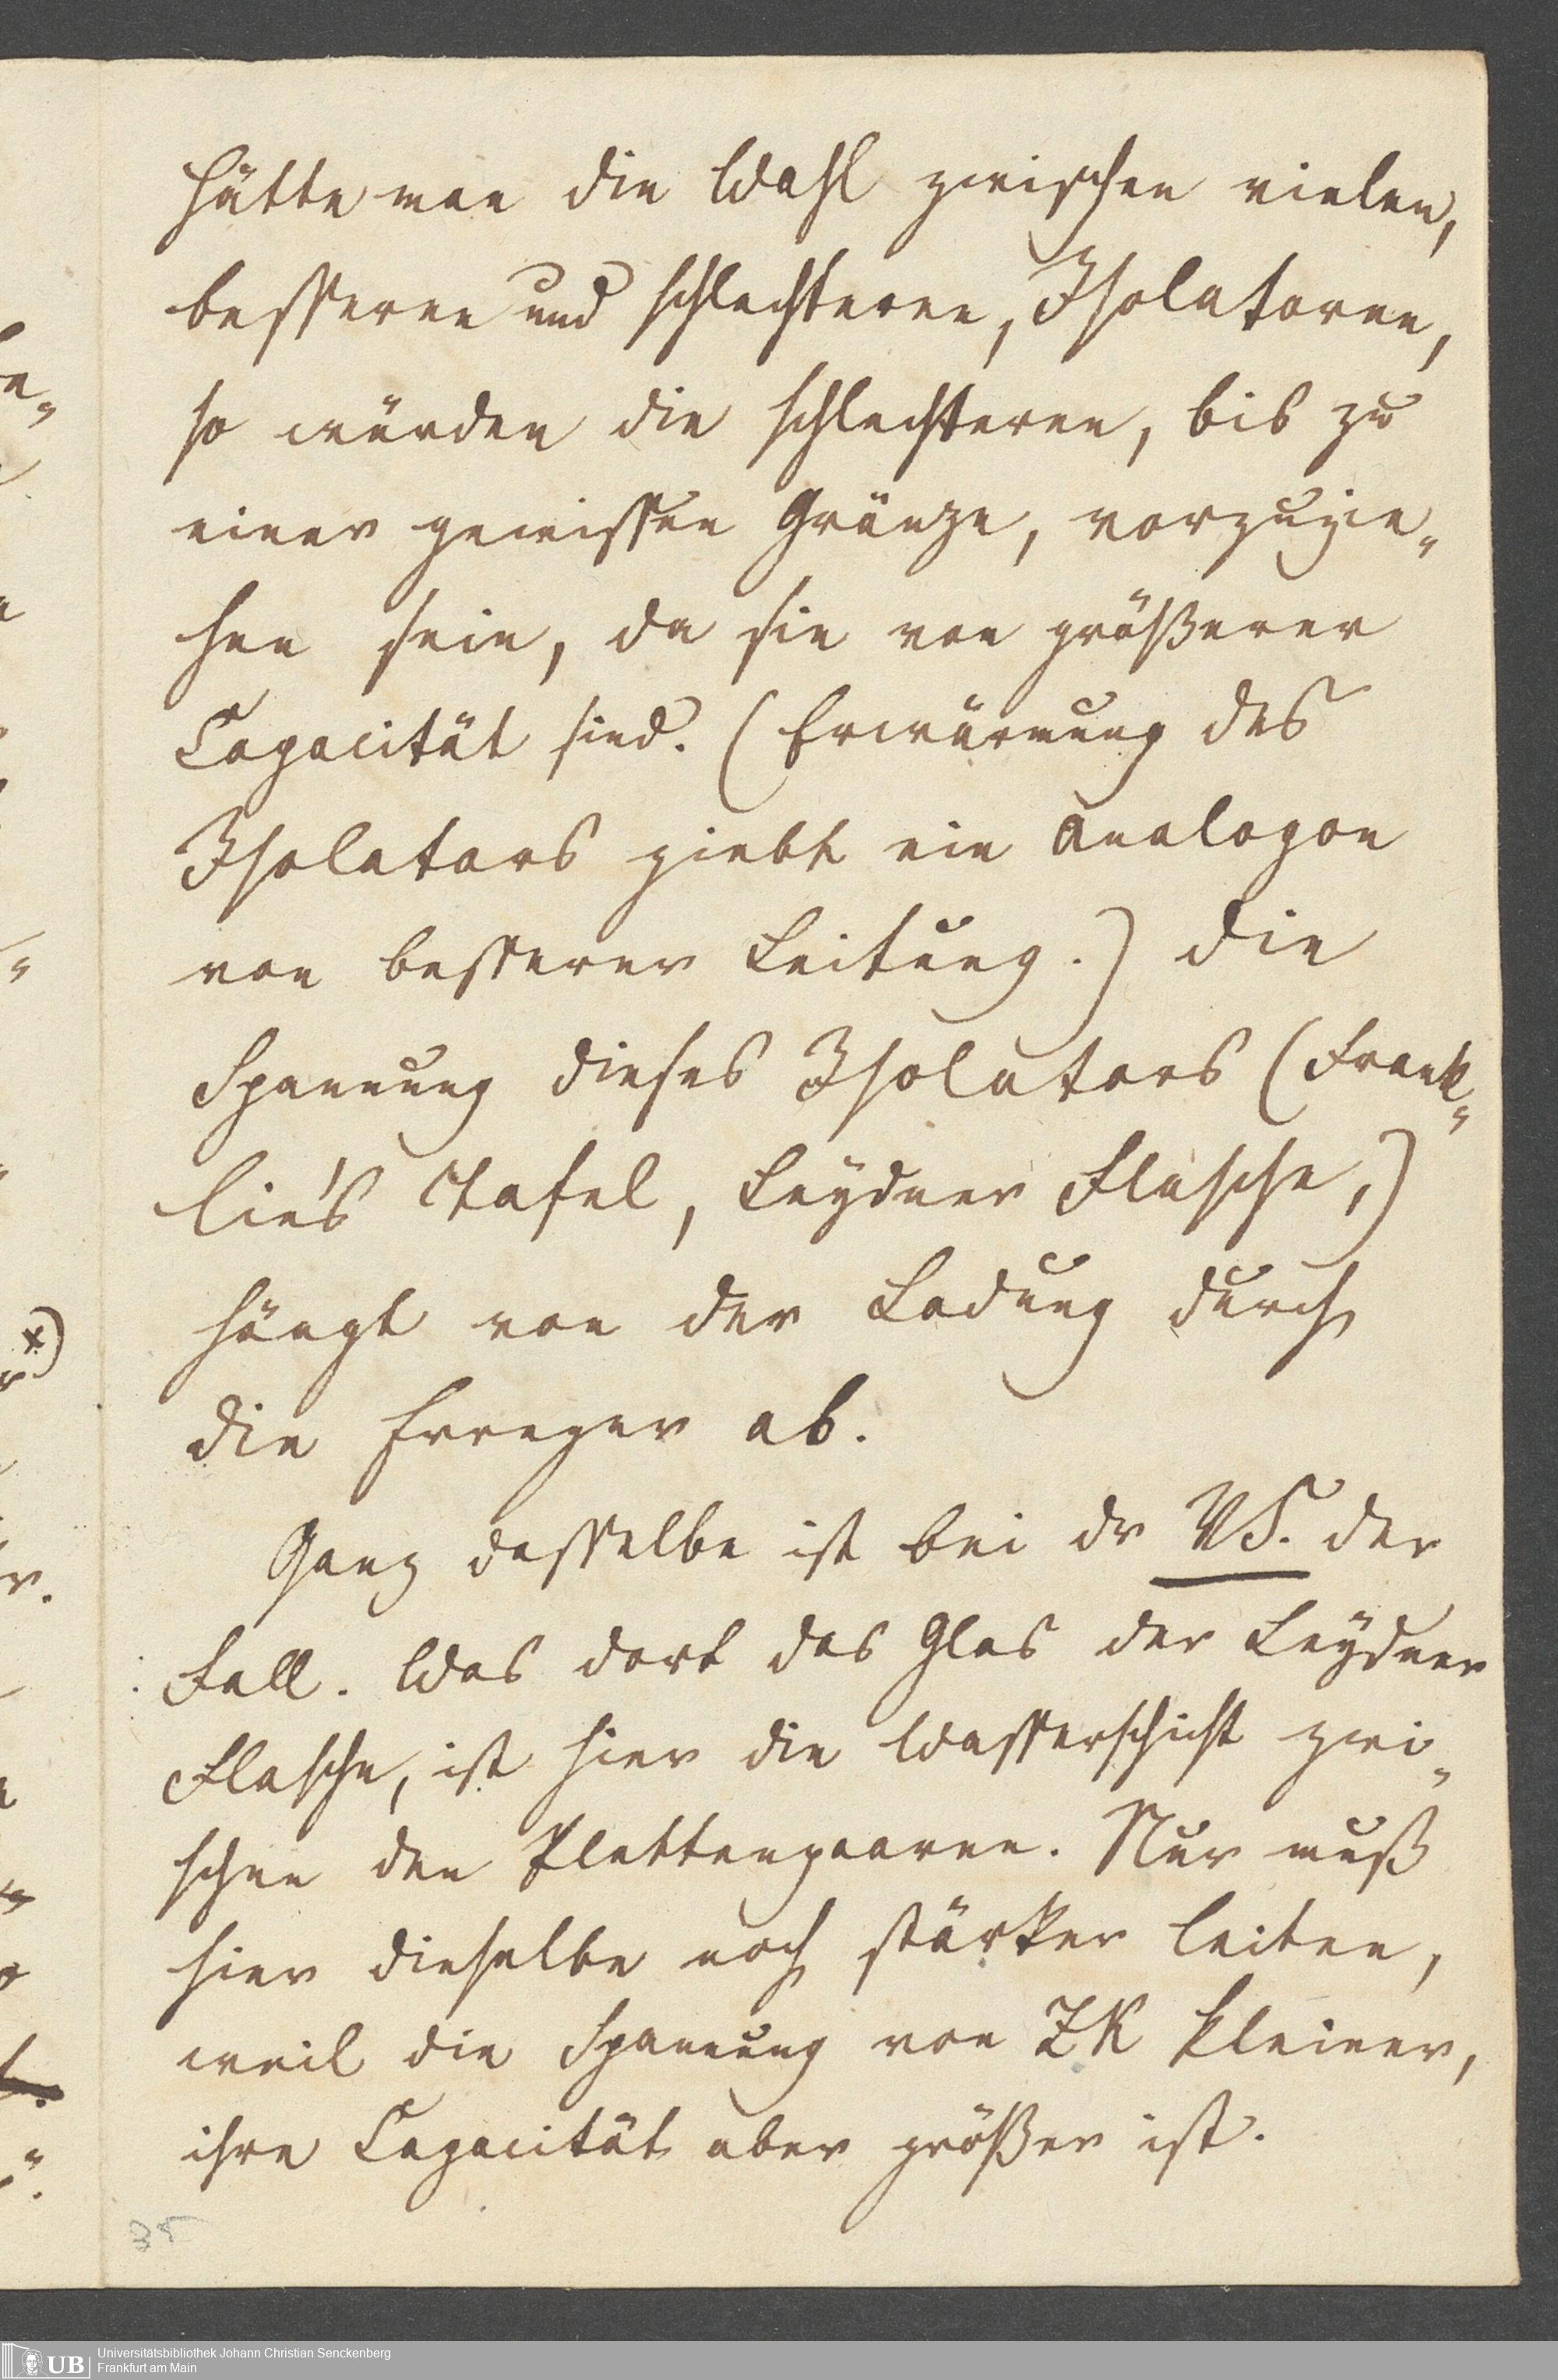 hätte man die Wahl zwischen vielen,
besseren und schlechteren, Isolatoren,
so würden die schlechteren, bis zu
einer gewissen Gränze, vorzuzie„
hen sein, da sie von größerer
Capacität sind. (Erwärmung des
Isolators giebt ein Analogon
von besserer Leitung.) Die
Spannung dieses Isolators (Frank„
lin's Tafel, Leydner Flasche,)
hängt von der Ladung durch
die Erreger ab.
Ganz dasselbe ist bei dr VS. der
Fall. Was dort das Glas der Leydner
Flasche, ist hier die Wasserschicht zwi„
schen den Plattenpaaren. Nur muß
hier dieselbe noch stärker leiten,
weil die Spannung von ZK kleiner,
ihre Capacität aber größer ist.
35
UB
Universitätsbibliothek Johann Christian Senckenberg
Frankfurt am Main